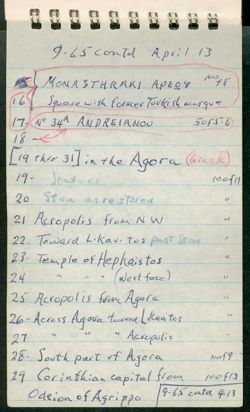 9-65 contd April 13
MONASTHRAKI
16 Square with former Turkish mosque
17- No 34A ANDREIANOU 50f5.6
18-
[19 thru 31] in the Agora (Greek)
19- Statues 100f11
20 Stoa as restored "
21 Acropolis from NW "
22. Toward Likavitos past Stoa "
23- Temple of Hephaistos "
24 " " " (West face) "
25 Acropolis from Agora "
26- Across Agora toward "
27 " " " Acropolis "
28- South part of Agora 100f9
29 Corinthian capital from 100f13
Odeion of Agrippa 9-65 contd 4/13